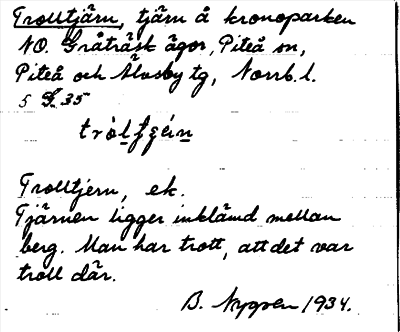 Trolltjärn, tjärn å kronoparken
NO. Gråträsk ägor, Piteå sn,
Piteå och Älvsby tg, Norrb. l.
5 G. 35
Trolltjern, ek.
Tjärnen ligger inklämd mellan
berg. Man har trott, att det var
troll där.
B. Nygren 1934.